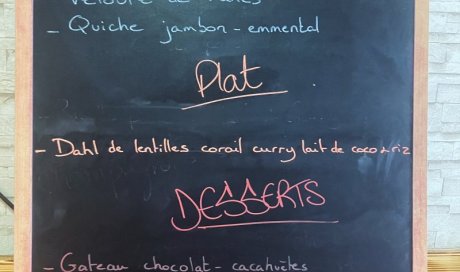 - Quiche jambon - emmental
Plat
- Dahl de lentilles corail curry lait de coco & riz
DESSERTS
- Gateau chocolat - cacahuètes